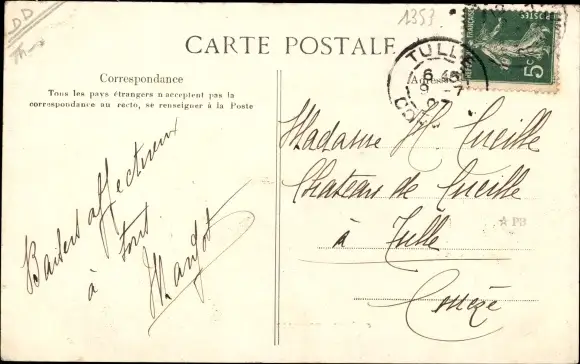 DD
1353
CARTE POSTALE
Correspondance
Tous les pays étrangers n'acceptent pas la
correspondance au recto, se renseigner à la Poste
Adresse
TULLE
6 45
9 - 7
07
POSTES
5c
Baisers affectueux
à tous
Margot
Madame M. Cueille
Château de Cueille
à Tulle
Corrèze
★ PB